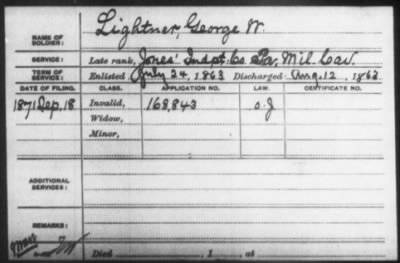 NAME OF SOLDIER: Lightner, George W.
SERVICE: Late rank, Jones' Indpt. Co Pa. Mil. Cav.
TERM OF SERVICE: Enlisted July 24, 1863 Discharged Aug. 12, 1863
DATE OF FILING. CLASS. APPLICATION NO. LAW. CERTIFICATE NO.
1871 Sep. 18 Invalid, 168,843 O.J
Widow,
Minor,
ADDITIONAL SERVICES:
REMARKS:
Died , 1 , at